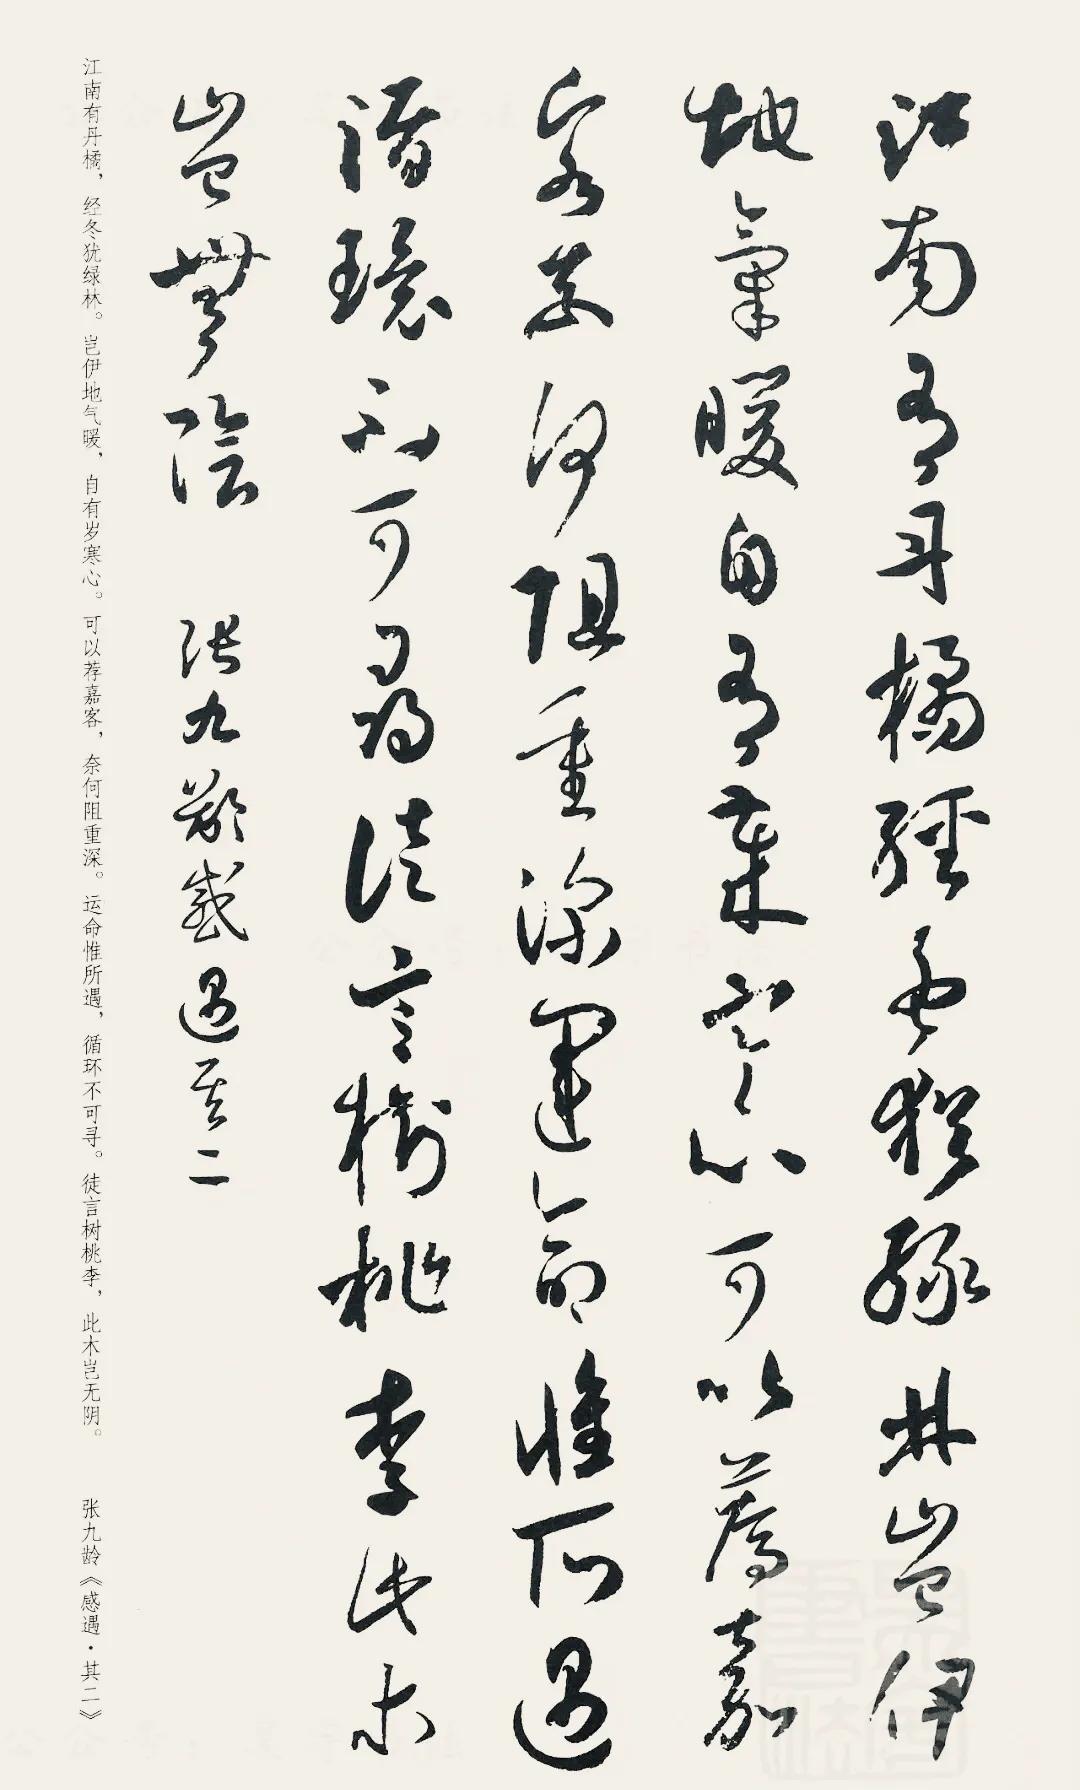 江南有丹橘經冬猶綠林豈伊
地氣暖自有歲寒心可以薦嘉
客奈何阻重深運命惟所遇
循環不可尋徒言樹桃李此木
豈無陰 張九齡感遇其二
江南有丹橘，经冬犹绿林。岂伊地气暖，自有岁寒心。可以荐嘉客，奈何阻重深。运命惟所遇，循环不可寻。徒言树桃李，此木岂无阴。 张九龄《感遇·其二》